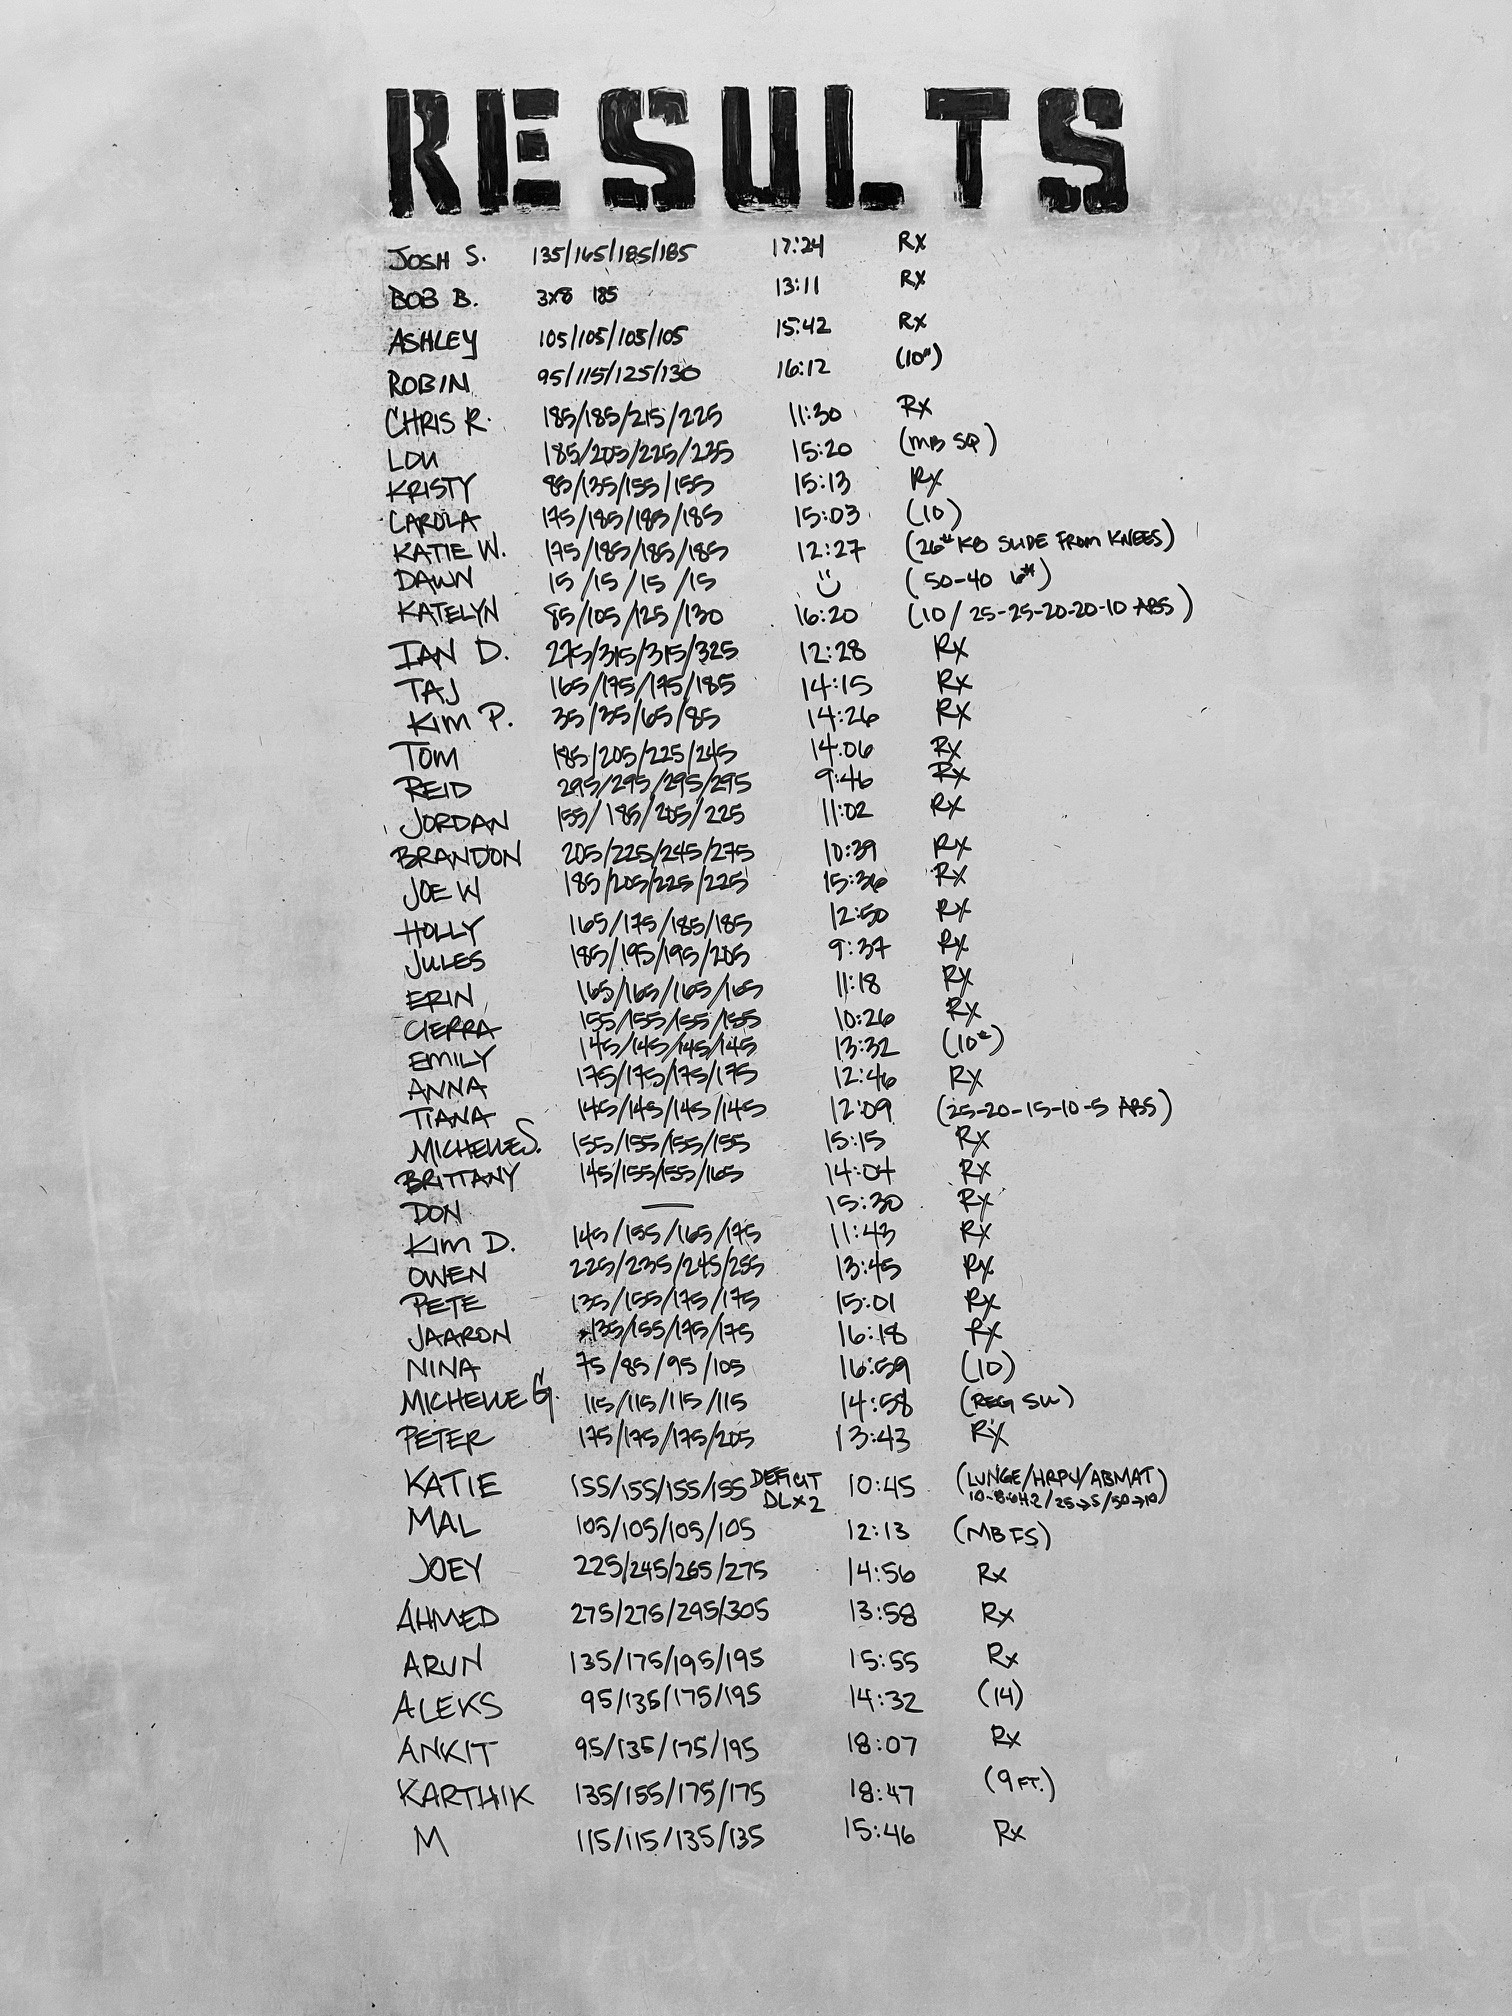 RESULTS
JOSH S. 135/165/185/185 17:24 Rx
BOB B. 3x8 185 13:11 Rx
ASHLEY 105/105/105/105 15:42 Rx
ROBIN 95/115/125/130 16:12 (10#)
CHRIS R. 185/185/215/225 11:30 Rx
LOU 185/205/225/235 15:20 (MB SQ)
KRISTY 85/135/155/155 15:13 Rx
CAROLA 175/185/185/185 15:03 (10)
KATIE W. 175/185/185/185 12:27 (26# KB SLIDE FROM KNEES)
DAWN 15/15/15/15 (50-40 6#)
KATELYN 85/105/125/130 16:20 (10/25-25-20-20-10 ABS)
IAN D. 275/315/315/325 12:28 Rx
TAJ 165/175/175/185 14:15 Rx
KIM P. 35/35/65/85 14:26 Rx
TOM 185/205/225/245 14:06 Rx
REID 295/295/295/295 9:46 Rx
JORDAN 155/185/205/225 11:02 Rx
BRANDON 205/225/245/275 10:39 Rx
JOE W 185/205/225/225 15:36 Rx
HOLLY 165/175/185/185 12:50 Rx
JULES 185/195/195/205 9:37 Rx
ERIN 165/165/165/165 11:18 Rx
CIERRA 155/155/155/155 10:26 Rx
EMILY 145/145/145/145 13:32 (10#)
ANNA 175/175/175/175 12:46 Rx
TIANA 145/145/145/145 12:09 (25-20-15-10-5 ABS)
MICHELLE S. 155/155/155/155 15:15 Rx
BRITTANY 145/155/155/165 14:04 Rx
DON — 15:30 Rx
KIM D. 145/155/165/175 11:43 Rx
OWEN 225/235/245/255 13:45 Rx
PETE 135/155/175/175 15:01 Rx
JAARON 135/155/175/175 16:18 Rx
NINA 75/85/95/105 16:59 (10)
MICHELLE G. 115/115/115/115 14:58 (REG SU)
PETER 175/175/175/205 13:43 Rx
KATIE 155/155/155/155 DEFICIT DLx2 10:45 (LUNGE/HRPU/ABMAT)
10-8-6-4-2/25→5/50→10
MAL 105/105/105/105 12:13 (MBFS)
JOEY 225/245/265/275 14:56 Rx
AHMED 275/275/295/305 13:58 Rx
ARUN 135/175/195/195 15:55 Rx
ALEKS 95/135/175/195 14:32 (14)
ANKIT 95/135/175/195 18:07 Rx
KARTHIK 135/155/175/175 18:47 (9 FT.)
M 115/115/135/135 15:46 Rx
BULGER